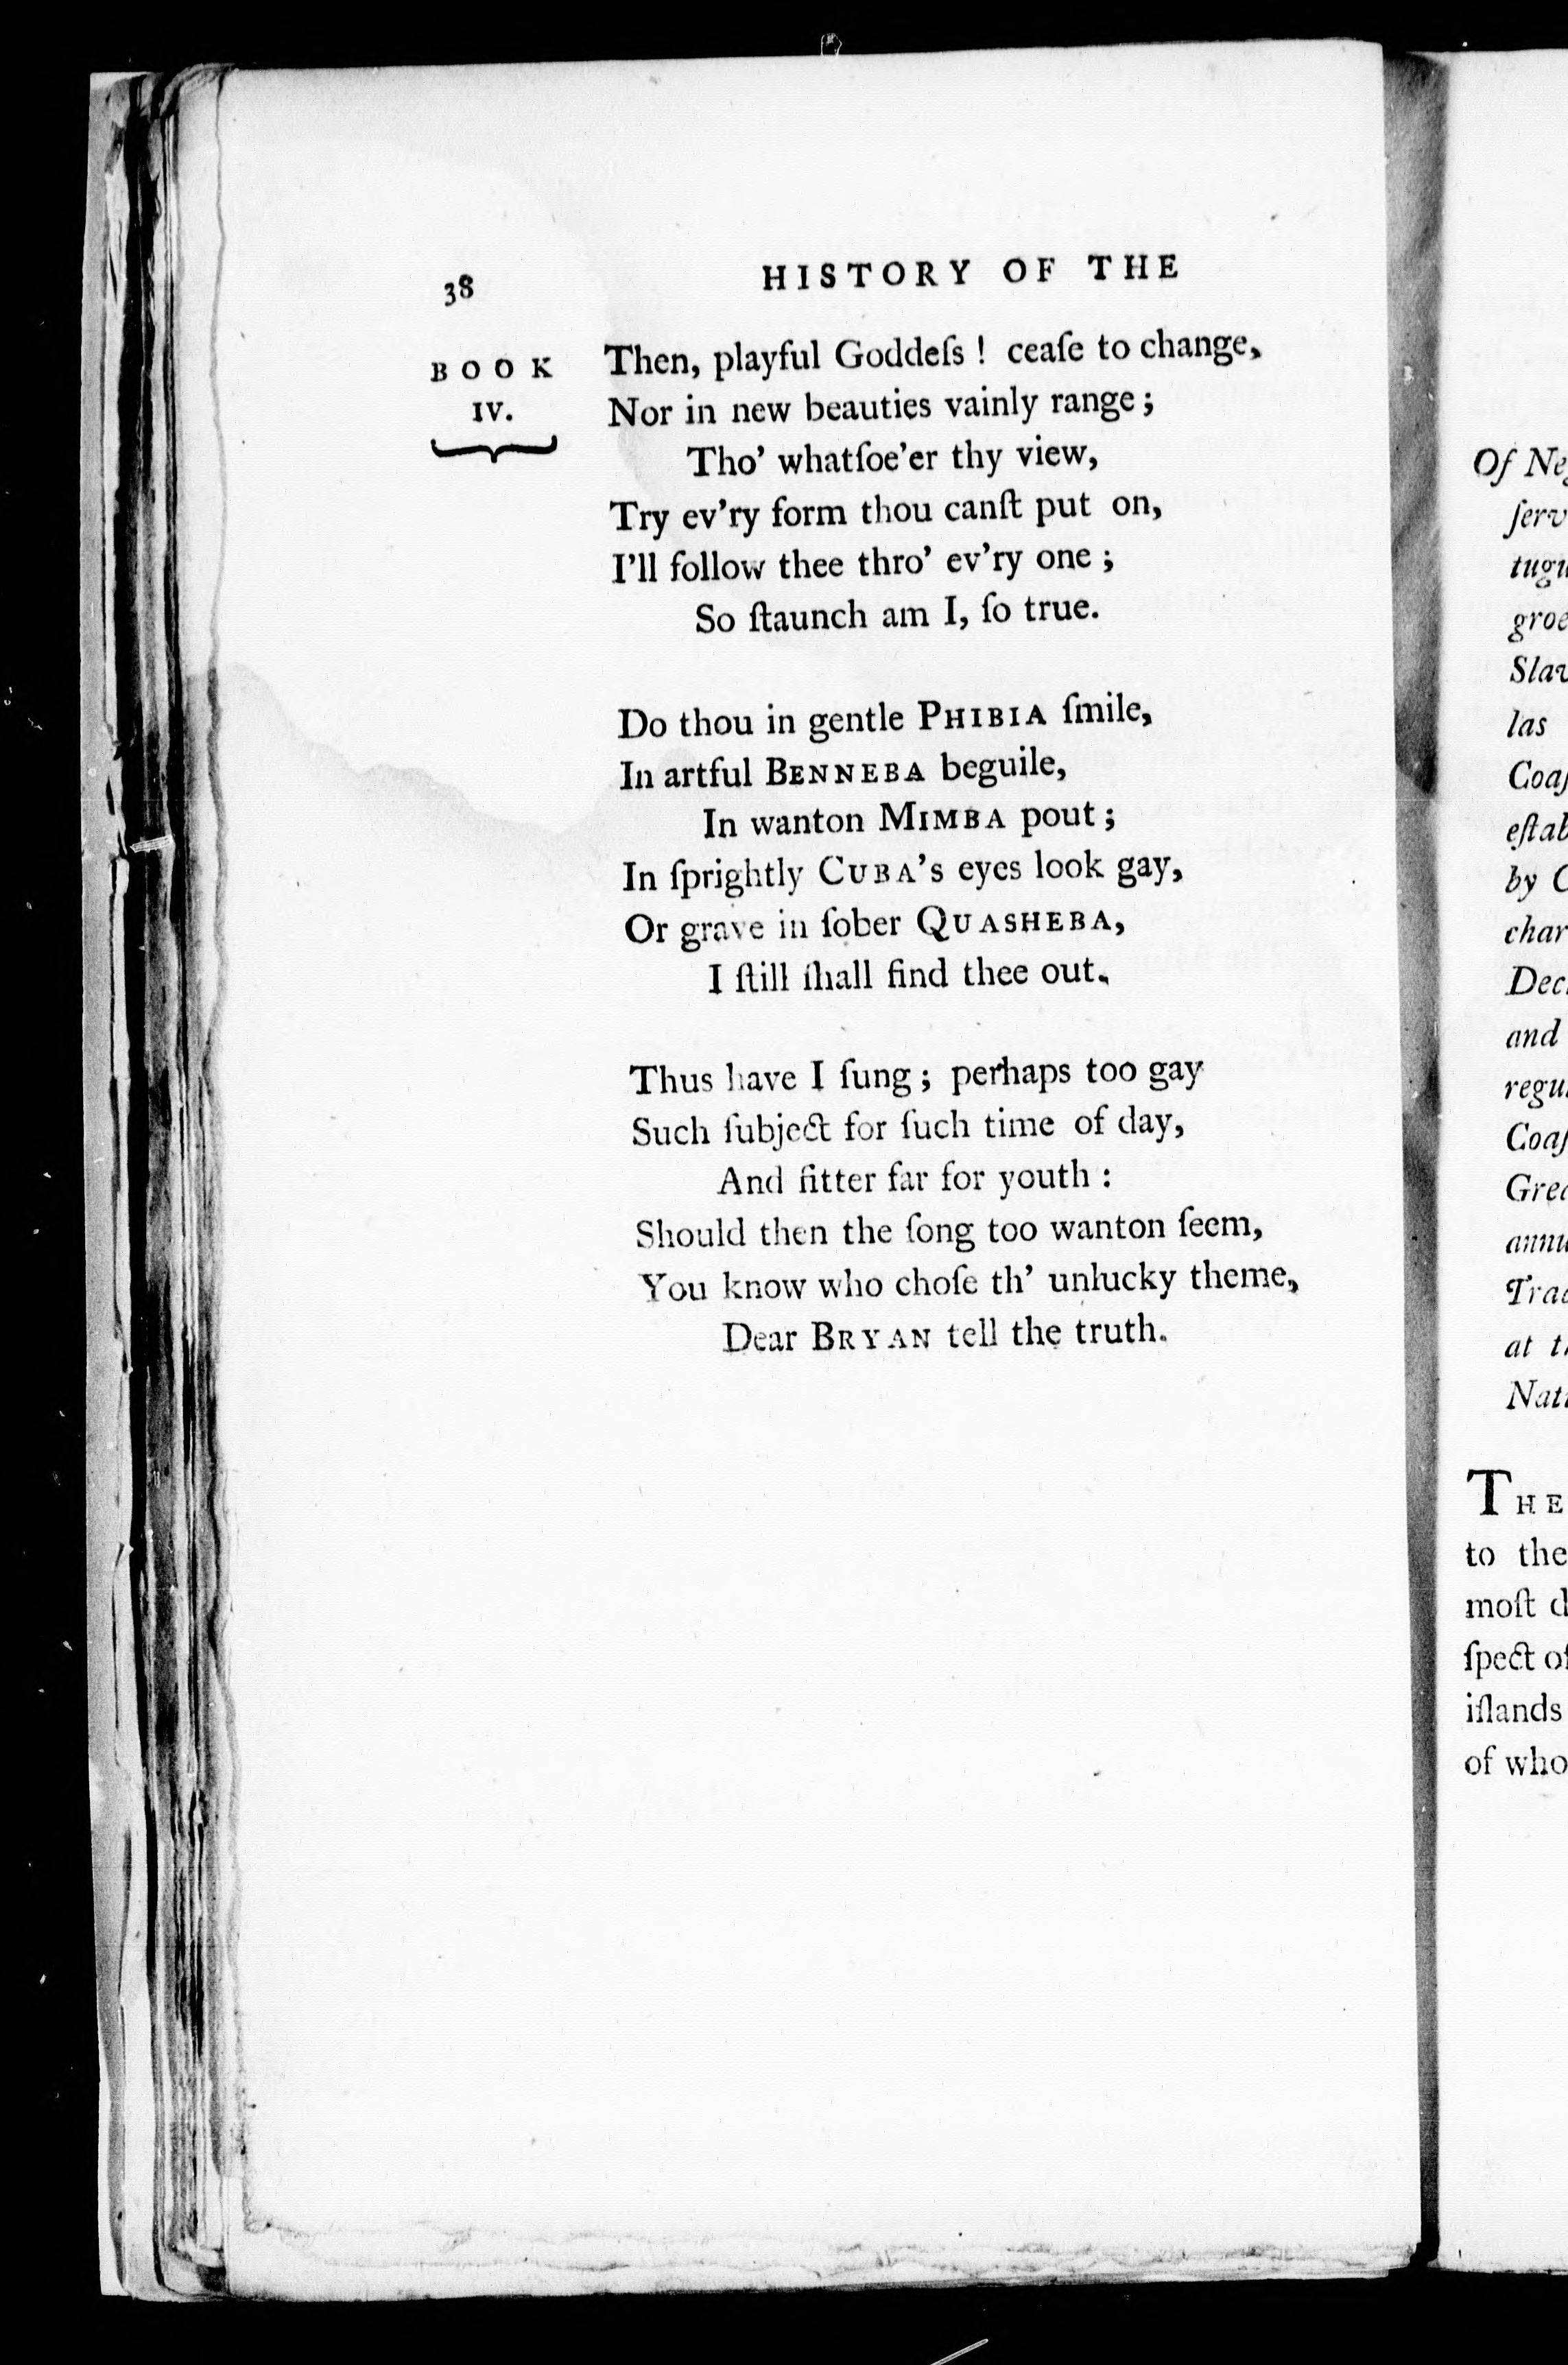 38
HISTORY OF THE
BOOK
IV.
Then, playful Goddeſs ! ceaſe to change,
Nor in new beauties vainly range ;
Tho' whatſoe'er thy view,
Try ev'ry form thou canſt put on,
I'll follow thee thro' ev'ry one ;
So ſtaunch am I, ſo true.
Do thou in gentle PHIBIA ſmile,
In artful BENNEBA beguile,
In wanton MIMBA pout ;
In ſprightly CUBA's eyes look gay,
Or grave in ſober QUASHEBA,
I ſtill ſhall find thee out.
Thus have I ſung ; perhaps too gay
Such ſubject for ſuch time of day,
And fitter far for youth :
Should then the ſong too wanton ſeem,
You know who choſe th' unlucky theme,
Dear BRYAN tell the truth.
Of
ſerv
tugu
groe
Slav
las
Coaſ
eſtab
by C
char
Decl
and
regu
Coaſ
Grea
annu
Trad
at
Nat
THE
to the
moſt d
ſpect of
iſlands
of who